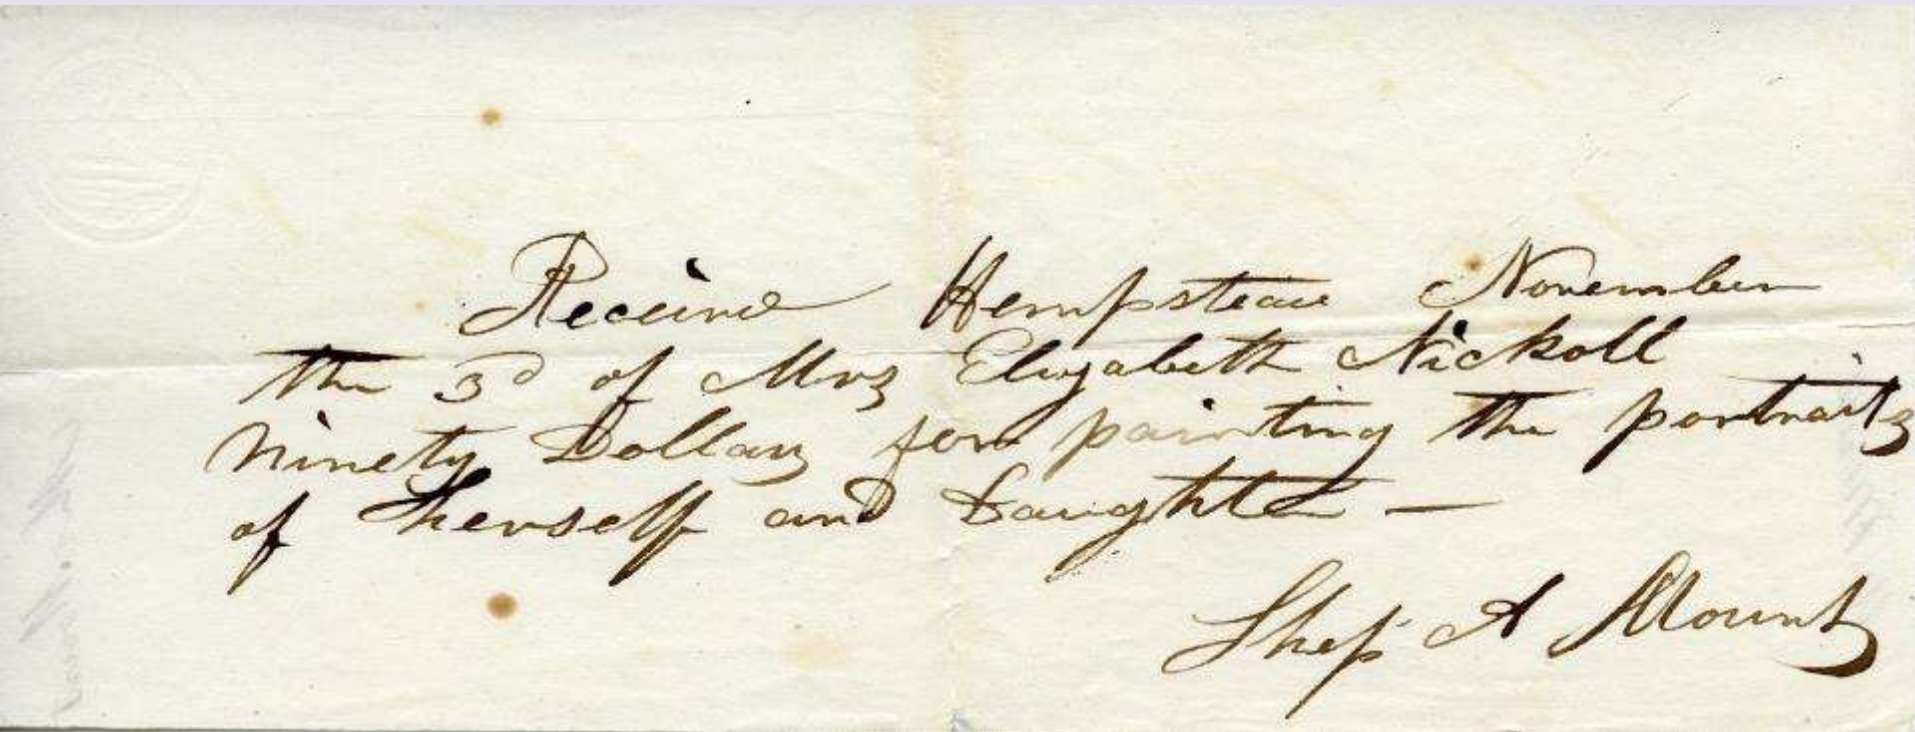 Received Hempstead November
the 3d of Mrs Elizabeth Nickoll
Ninety Dollars for painting the portraits
of herself and Daughter —
Shep A Mount